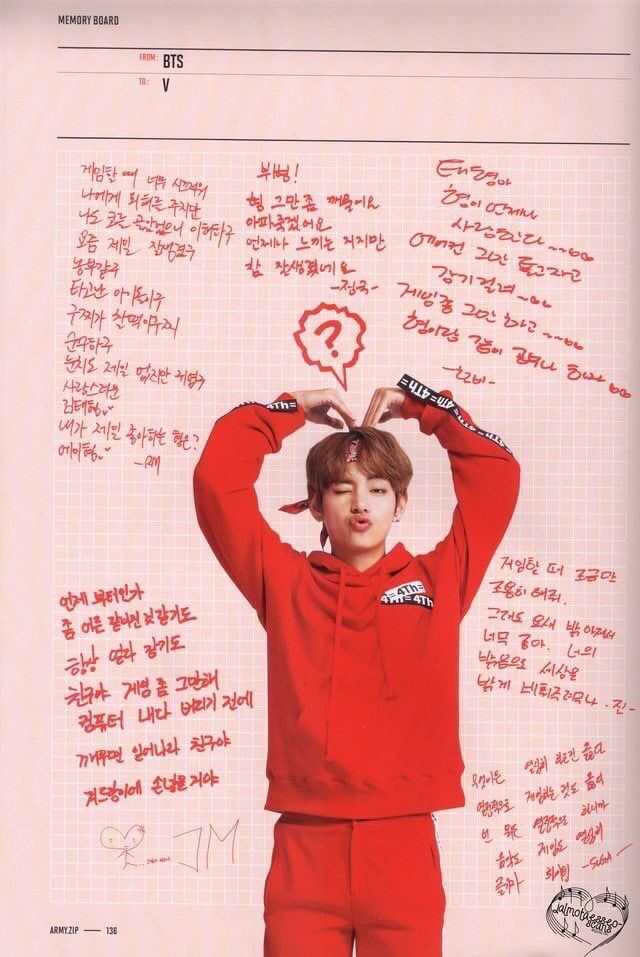 MEMORY BOARD
FROM: BTS
TO: V
게임할 때 너무 시끄러워
나에게 피해를 주지만
나도 코를 골았었으니 이해하구
요즘 제일 잘생겼구
농부같구
타고난 아이돌이구
구찌가 찰떡이구
눈치도 제일 없지만 귀엽구
사랑스러운
김태형
내가 제일 좋아하는 형은?
에이형
-RM
뷔형!
형 그만 좀 깨물어요
아파죽겠어요
언제나 느끼는 거지만
참 잘생겼네요
-정국-
태형아
형이 언제나
사랑한다~~
에어컨 그만 틀고자고
감기걸려~
게임좀 그만 하고~~
형이랑 같이
-호비-
?
4Th=
=4Th=4Th=
언제 부터인가
좀 어른 같아진 것 같기도
항상 얼라 같기도
친구야 게임 좀 그만해
컴퓨터 내다 버리기 전에
깨우면 일어나라 친구야
겨드랑이에 손 넣을 거야
JM
게임할 때 조금만
조용히 해줘.
그래도 요새 밝아져서
너무 좋아. 너의
밝음으로 세상을
밝게 비춰주려무나. 진-
무엇이든 열심히 하는건 옳다
열정적으로 게임하는 것도 옳다
넌 뭐든 열정적으로 하니까
음악도 게임도 열심히
즐기자 화이팅 -SUGA
=4Th=
4Th=4Th
ARMY.ZIP — 136
jalmotdaesseo-
scans